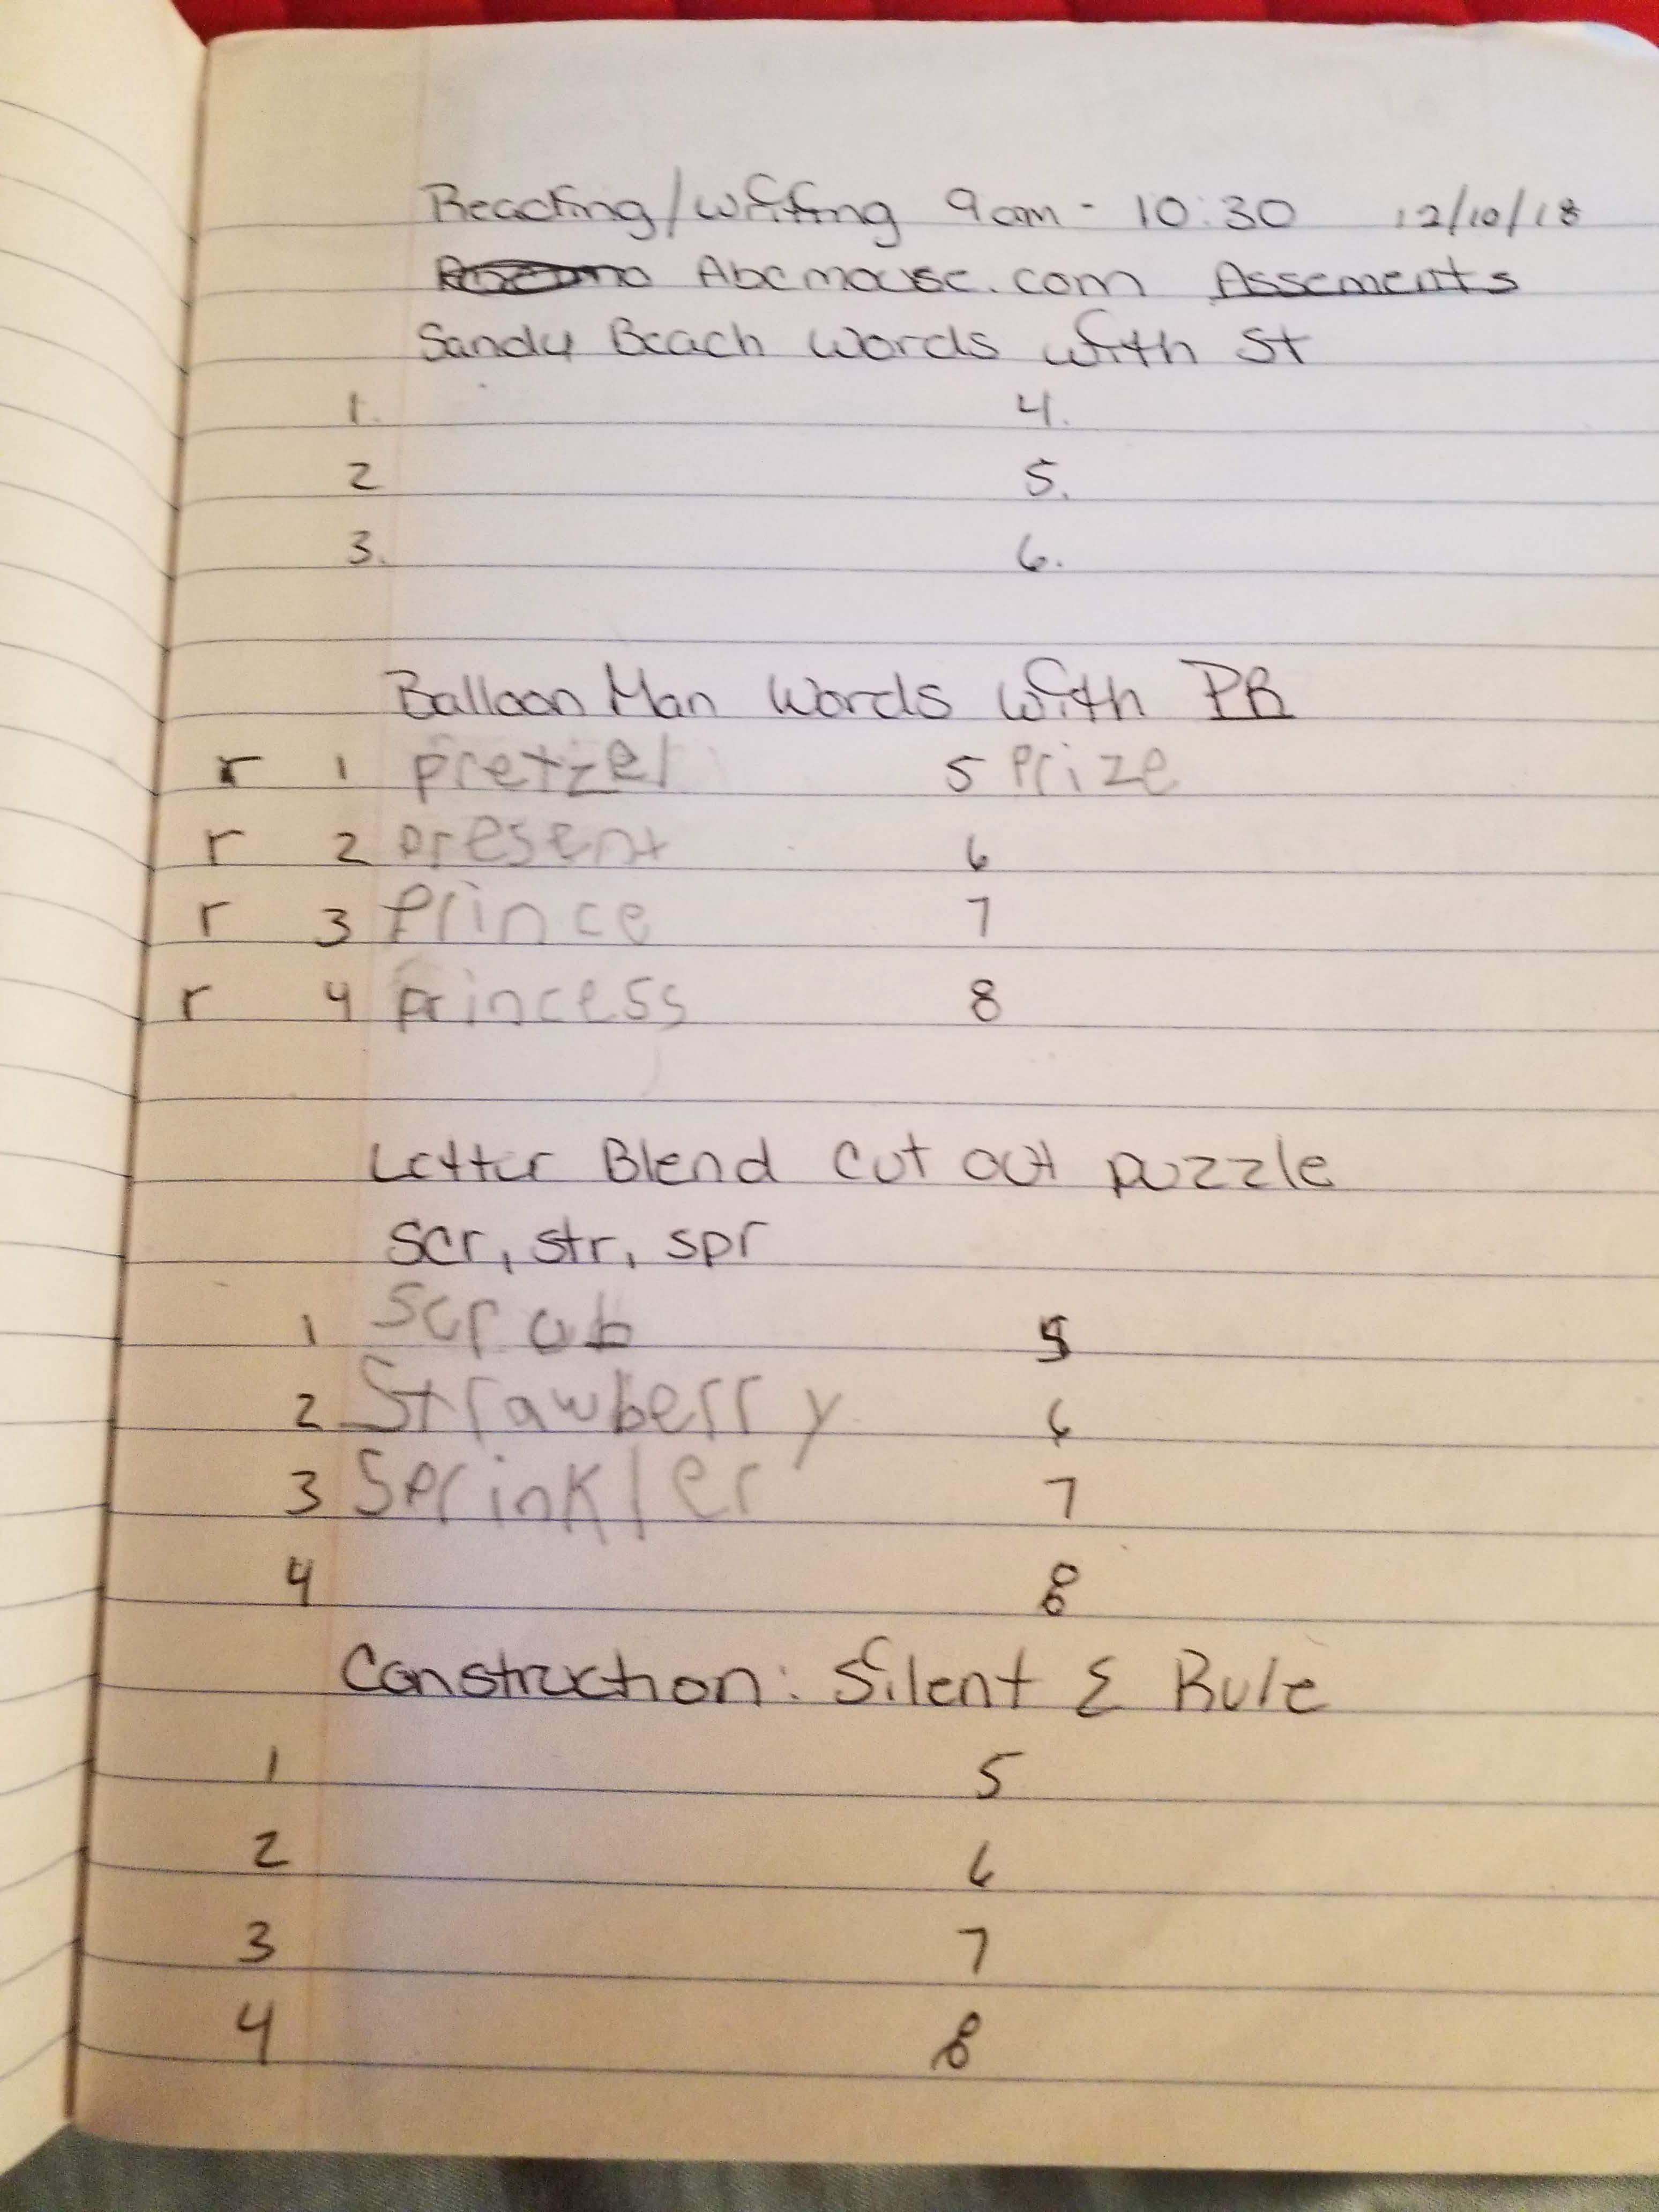 Reading/writing 9am - 10:30 12/10/18
Abcmouse.com Assements
Sandy Beach Words with St
1. 4.
2 5.
3. 6.
Balloon Man Words with PR
r 1 pretzel 5 Prize
r 2 present 6
r 3 Prince 7
r 4 princess 8
Letter Blend cut out puzzle
scr, str, spr
1 Scrub 5
2 Strawberry 6
3 Sprinkler 7
4 8
Construction: Silent E Rule
1 5
2 6
3 7
4 8